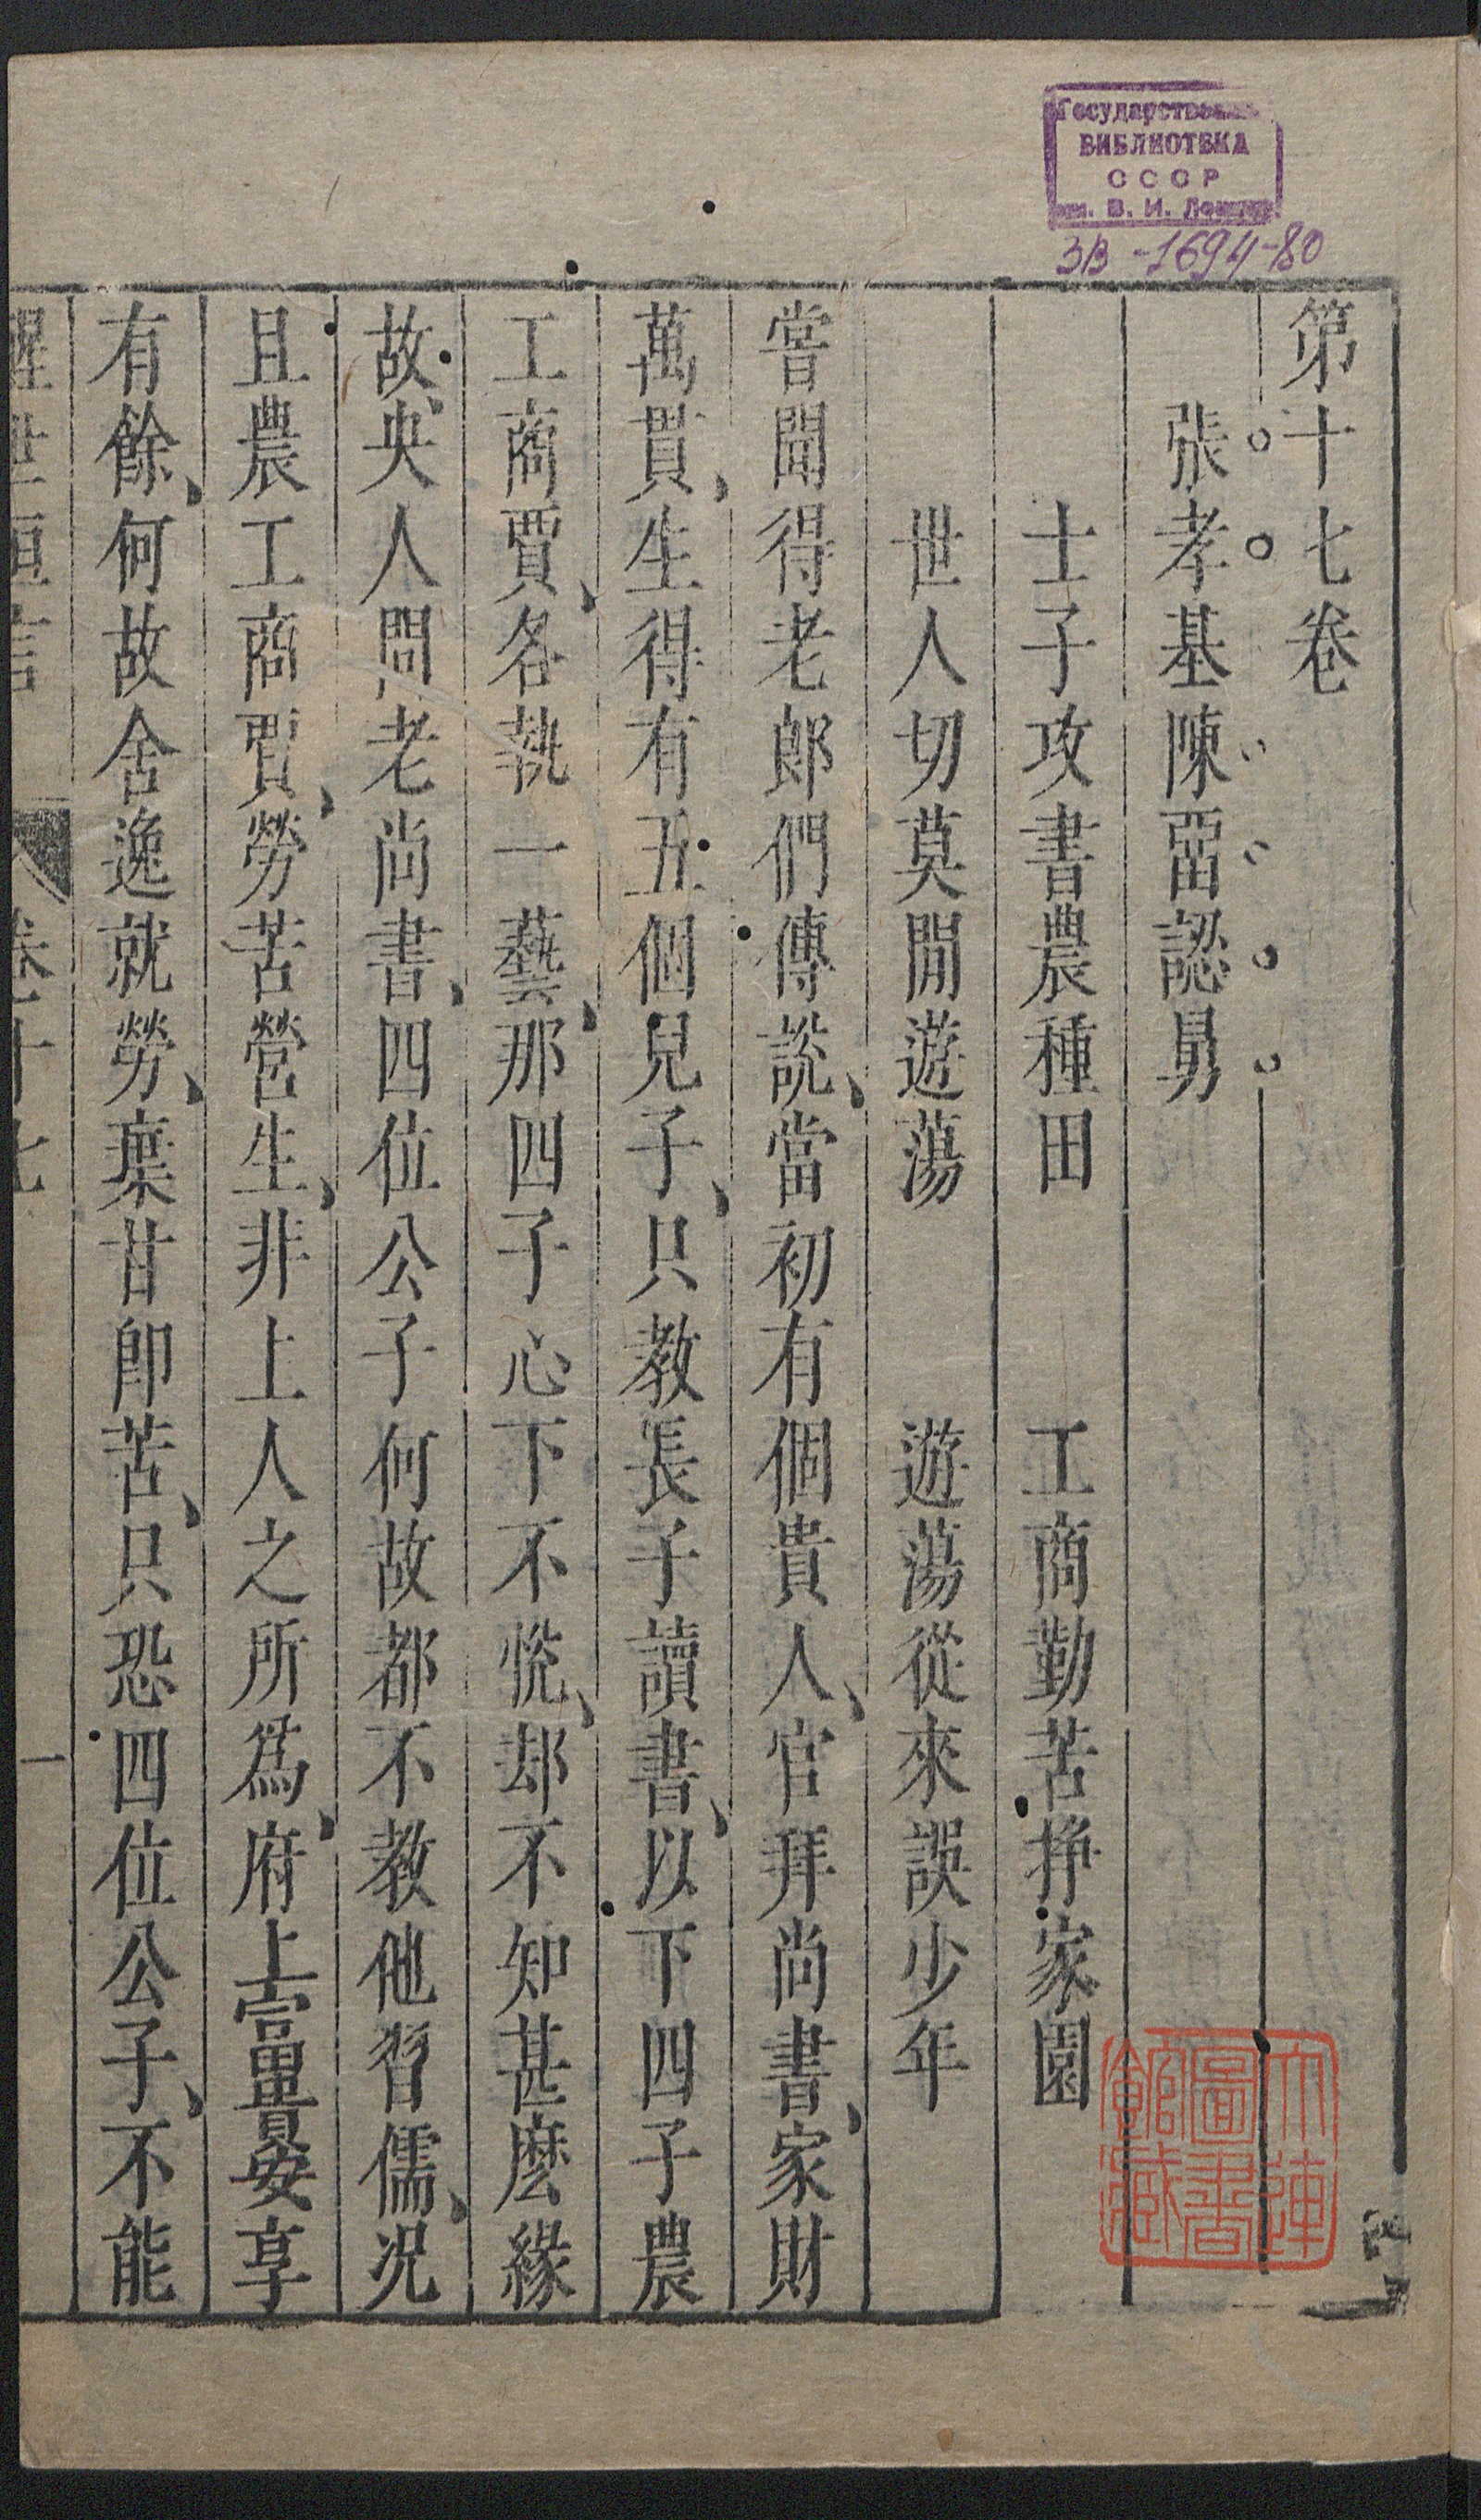 Государственная
БИБЛИОТЕКА
СССР
им. В. И. Ленина
3В-1694-80
第十七卷
張孝基陳畱認舅
士子攻書農種田　工商勤苦挣家園
世人切莫閒遊蕩　遊蕩從來誤少年
嘗聞得老郎們傳說、當初有個貴人、官拜尚書、家財
萬貫、生得有五個兒子、只教長子讀書、以下四子農
工商賈、各執一藝、那四子心下不悅、却不知甚麽緣
故、央人問老尚書、四位公子何故都不教他習儒、况
且農工商賈、勞苦營生、非上人之所爲、府上富貴安享
有餘、何故舍逸就勞、棄甘卽苦、只恐四位公子、不能
醒世恒言　卷十七　一
大連圖書館藏